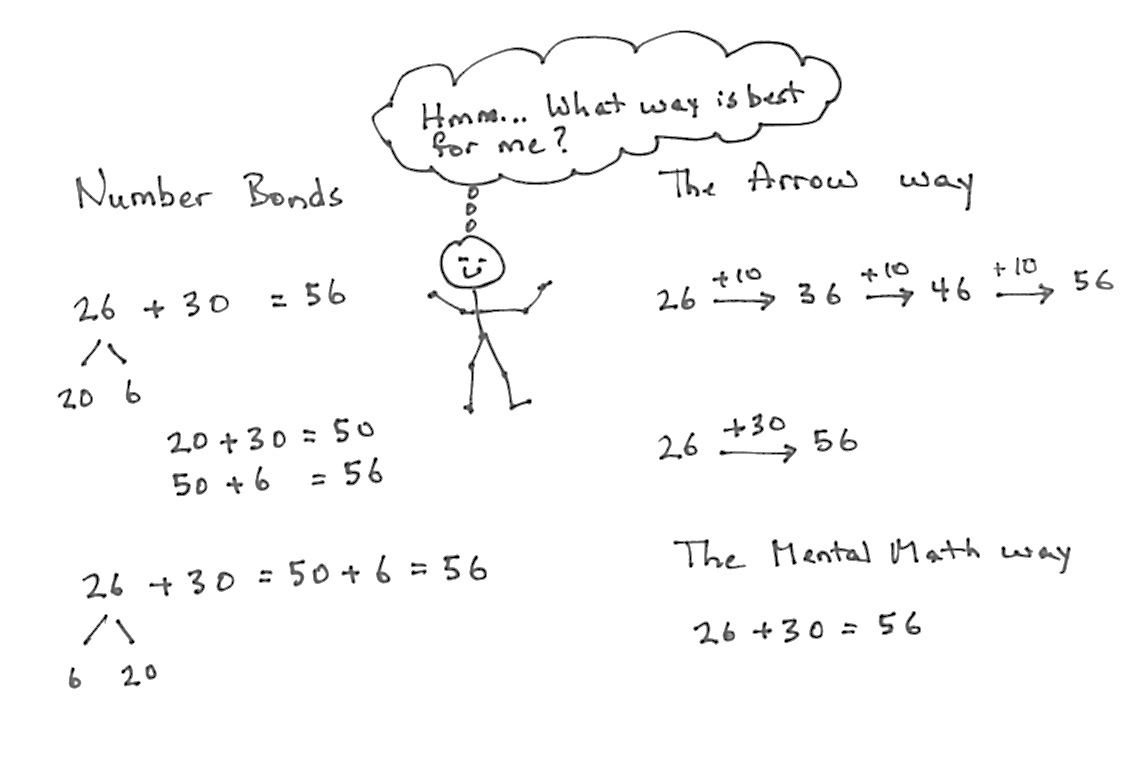 Hmm... What way is best
for me?
Number Bonds
26 + 30 = 56
20 6
20 + 30 = 50
50 + 6 = 56
26 + 30 = 50 + 6 = 56
6 20
The Arrow way
+10 +10 +10
26 → 36 → 46 → 56
+30
26 → 56
The Mental Math way
26 + 30 = 56